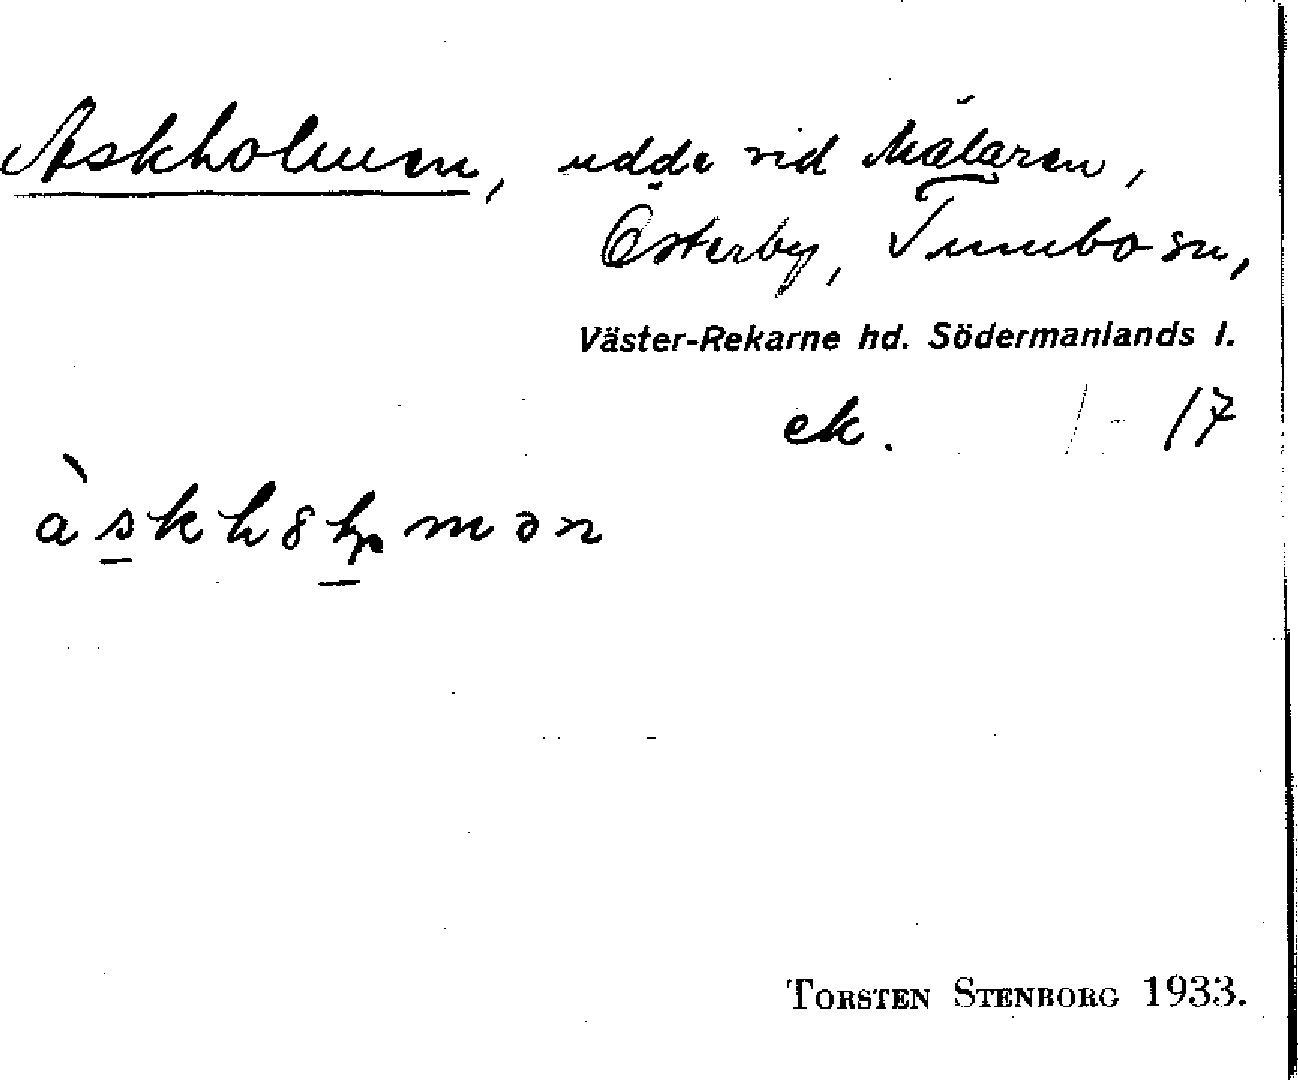 Askholmen, udde vid Mälaren,
Österby, Tumbo sn,
Väster-Rekarne hd. Södermanlands l.
ek. / - 17
àskh8ɭmən
TORSTEN STENBORG 1933.